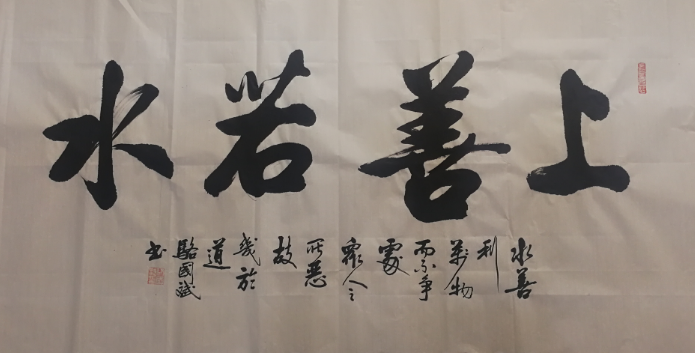 上善若水
水善
利
萬物
而不争
處
眾人之
所惡
故
幾於
道
駱國斌
书